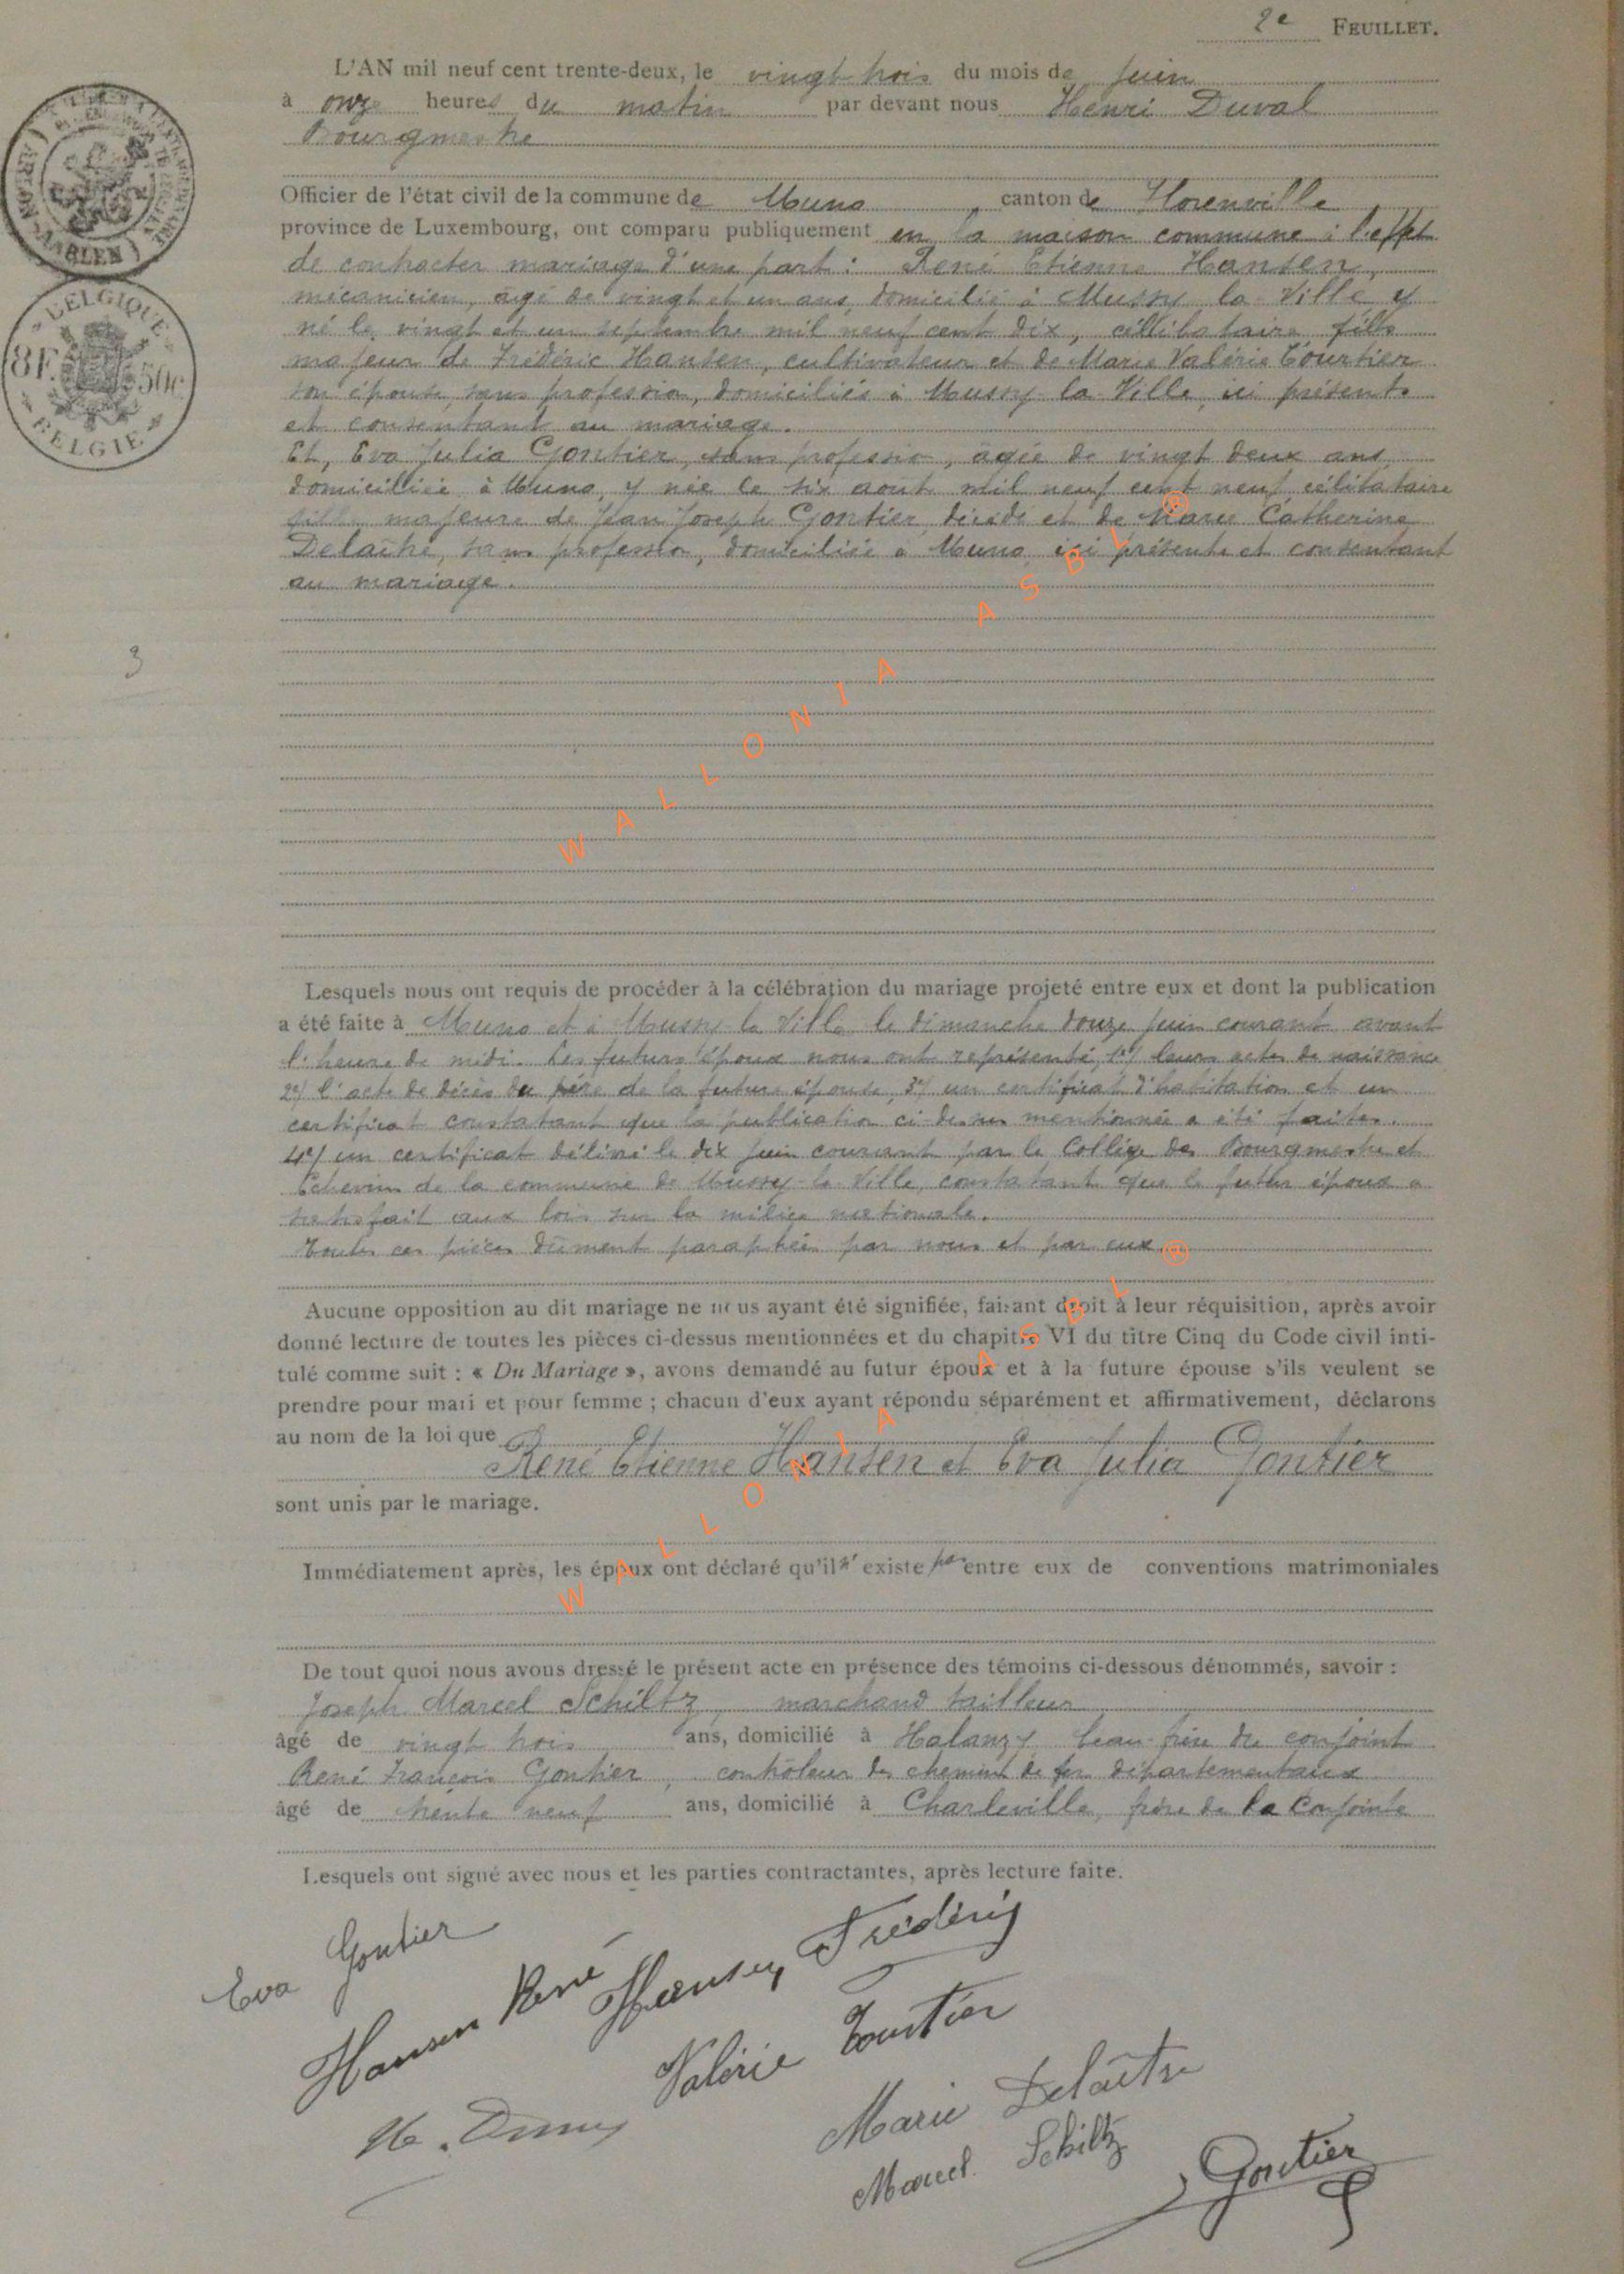 2e FEUILLET.
L'AN mil neuf cent trente-deux, le vingt trois du mois de Juin
à onze heures du matin par devant nous Henri Duval
Bourgmestre
Officier de l'état civil de la commune de Muno, canton de Florenville
province de Luxembourg, ont comparu publiquement en la maison commune à l'effet
de contracter mariage d'une part : René Etienne Hansen,
mécanicien, âgé de vingt et un ans, domicilié à Mussy la Ville y
né le vingt et un septembre mil neuf cent dix, célibataire fils
majeur de Frédéric Hansen, cultivateur et de Marie Valérie Tourtier
son épouse, sans profession, domiciliés à Mussy-la-Ville, ici présents
et consentant au mariage.
Et, Eva Julia Gontier, sans profession, âgée de vingt deux ans
domiciliée à Muno, y née le six août mil neuf cent neuf célibataire
fille majeure de Jean Joseph Gontier, décédé et de Marie Catherine
Delaître, sans profession, domiciliée à Muno, ici présente et consentant
au mariage.
3
Lesquels nous ont requis de procéder à la célébration du mariage projeté entre eux et dont la publication
a été faite à Muno et à Mussy la Ville le dimanche douze Juin courant avant
l'heure de midi. Les futurs époux nous ont représenté, 1°/ leurs actes de naissance
2°/ l'acte de décès du père de la future épouse, 3°/ un certificat d'habitation et un
certificat constatant que la publication ci dessus mentionnée a été faite.
4°/ un certificat délivré le dix Juin courant par le Collège des Bourgmestre et
Echevins de la commune de Mussy-la-Ville, constatant que le futur époux a
satisfait aux lois sur la milice nationale.
Toutes ces pièces dûment paraphées par nous et par eux.
Aucune opposition au dit mariage ne nous ayant été signifiée, faisant droit à leur réquisition, après avoir
donné lecture de toutes les pièces ci-dessus mentionnées et du chapitre VI du titre Cinq du Code civil inti-
tulé comme suit : « Du Mariage », avons demandé au futur époux et à la future épouse s'ils veulent se
prendre pour mari et pour femme ; chacun d'eux ayant répondu séparément et affirmativement, déclarons
au nom de la loi que
René Etienne Hansen et Eva Julia Gontier
sont unis par le mariage.
Immédiatement après, les époux ont déclaré qu'il n'existe pas entre eux de conventions matrimoniales
De tout quoi nous avons dressé le présent acte en présence des témoins ci-dessous dénommés, savoir :
Joseph Marcel Schiltz, marchand tailleur
âgé de vingt trois ans, domicilié à Halanzy beau-frère du conjoint
René François Gontier, contrôleur des chemins de fer départementaux
âgé de trente neuf ans, domicilié à Charleville, frère de la Conjointe
Lesquels ont signé avec nous et les parties contractantes, après lecture faite.
Eva Gontier
Hansen René
Hansen Frédéric
Valérie Tourtier
H. Duval
Marie Delaître
Marcel Schiltz
Gontier
BELGIQUE
8F. 50c
BELGIE
WALLONIA ASBL ®
WALLONIA ASBL ®